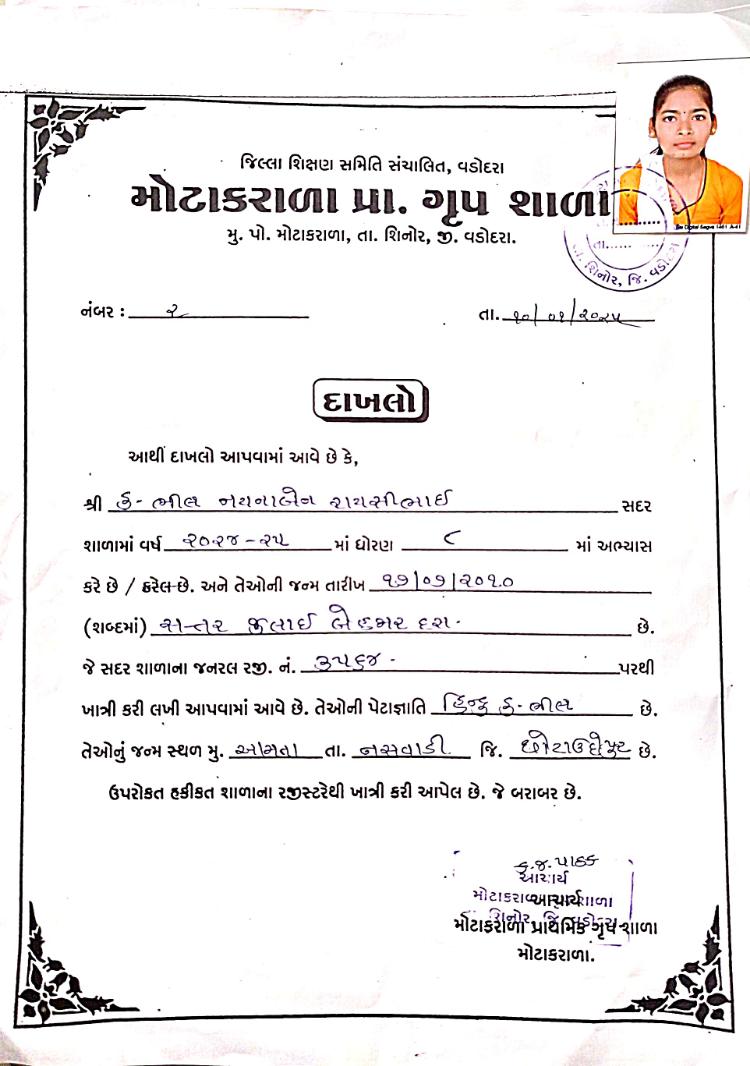 જિલ્લા શિક્ષણ સમિતિ સંચાલિત, વડોદરા
મોટાકરાળા પ્રા. ગૃપ શાળા
મુ. પો. મોટાકરાળા, તા. શિનોર, જી. વડોદરા.
તા.
તા. શિનોર, જિ. વડોદરા
નંબર : ૨
તા. ૧૦/૦૧/૨૦૨૫
દાખલો
આથી દાખલો આપવામાં આવે છે કે,
શ્રી ડુ- ભીલ નયનાબેન રાયસીભાઈ સદર
શાળામાં વર્ષ ૨૦૨૪-૨૫ માં ધોરણ ૮ માં અભ્યાસ
કરે છે / કરેલ છે. અને તેઓની જન્મ તારીખ ૧૭/૦૭/૨૦૧૦
(શબ્દમાં) સત્તર જુલાઈ બેહજાર દશ. છે.
જે સદર શાળાના જનરલ રજી. નં. ૩૫૬૪ - પરથી
ખાત્રી કરી લખી આપવામાં આવે છે. તેઓની પેટાજ્ઞાતિ હિન્દુ ડુ- ભીલ છે.
તેઓનું જન્મ સ્થળ મુ. આમતા તા. નસવાડી. જિ. છોટાઉદેપુર છે.
ઉપરોકત હકીકત શાળાના રજીસ્ટરેથી ખાત્રી કરી આપેલ છે. જે બરાબર છે.
ક.જ. પાઠક
આચાર્ય
આચાર્ય
મોટાકરાળા પ્રાથમિક ગૃપ શાળા
શિનોર, જિ. વડોદરા
મોટાકરાળા.